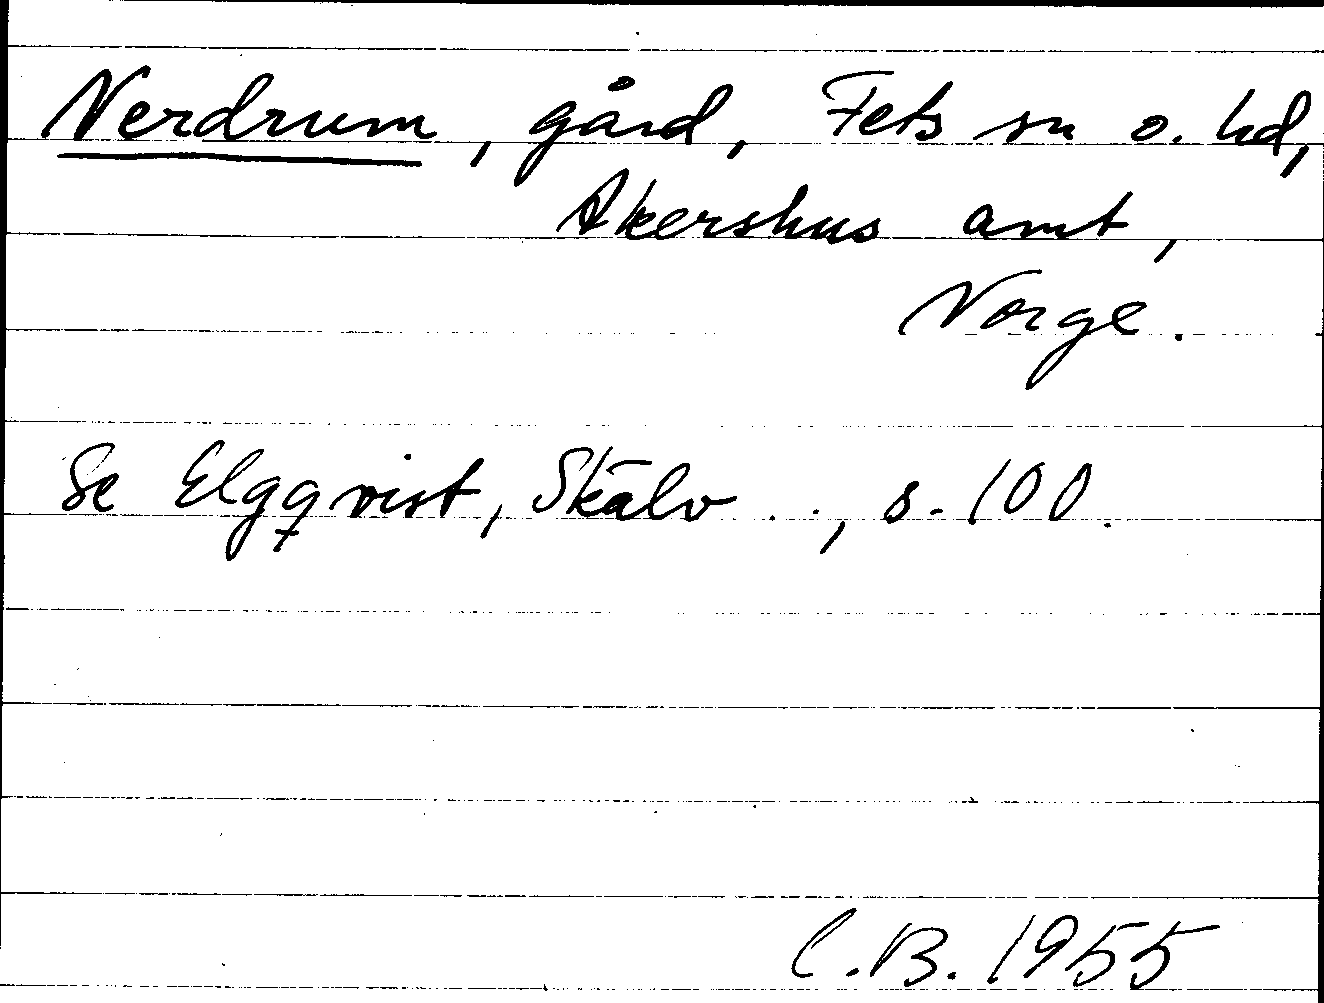 Nerdrum, gård, Fets sn o. hd,
Akershus amt,
Norge.
Se Elgqvist, Skälv . . , s. 100.
C.B. 1955